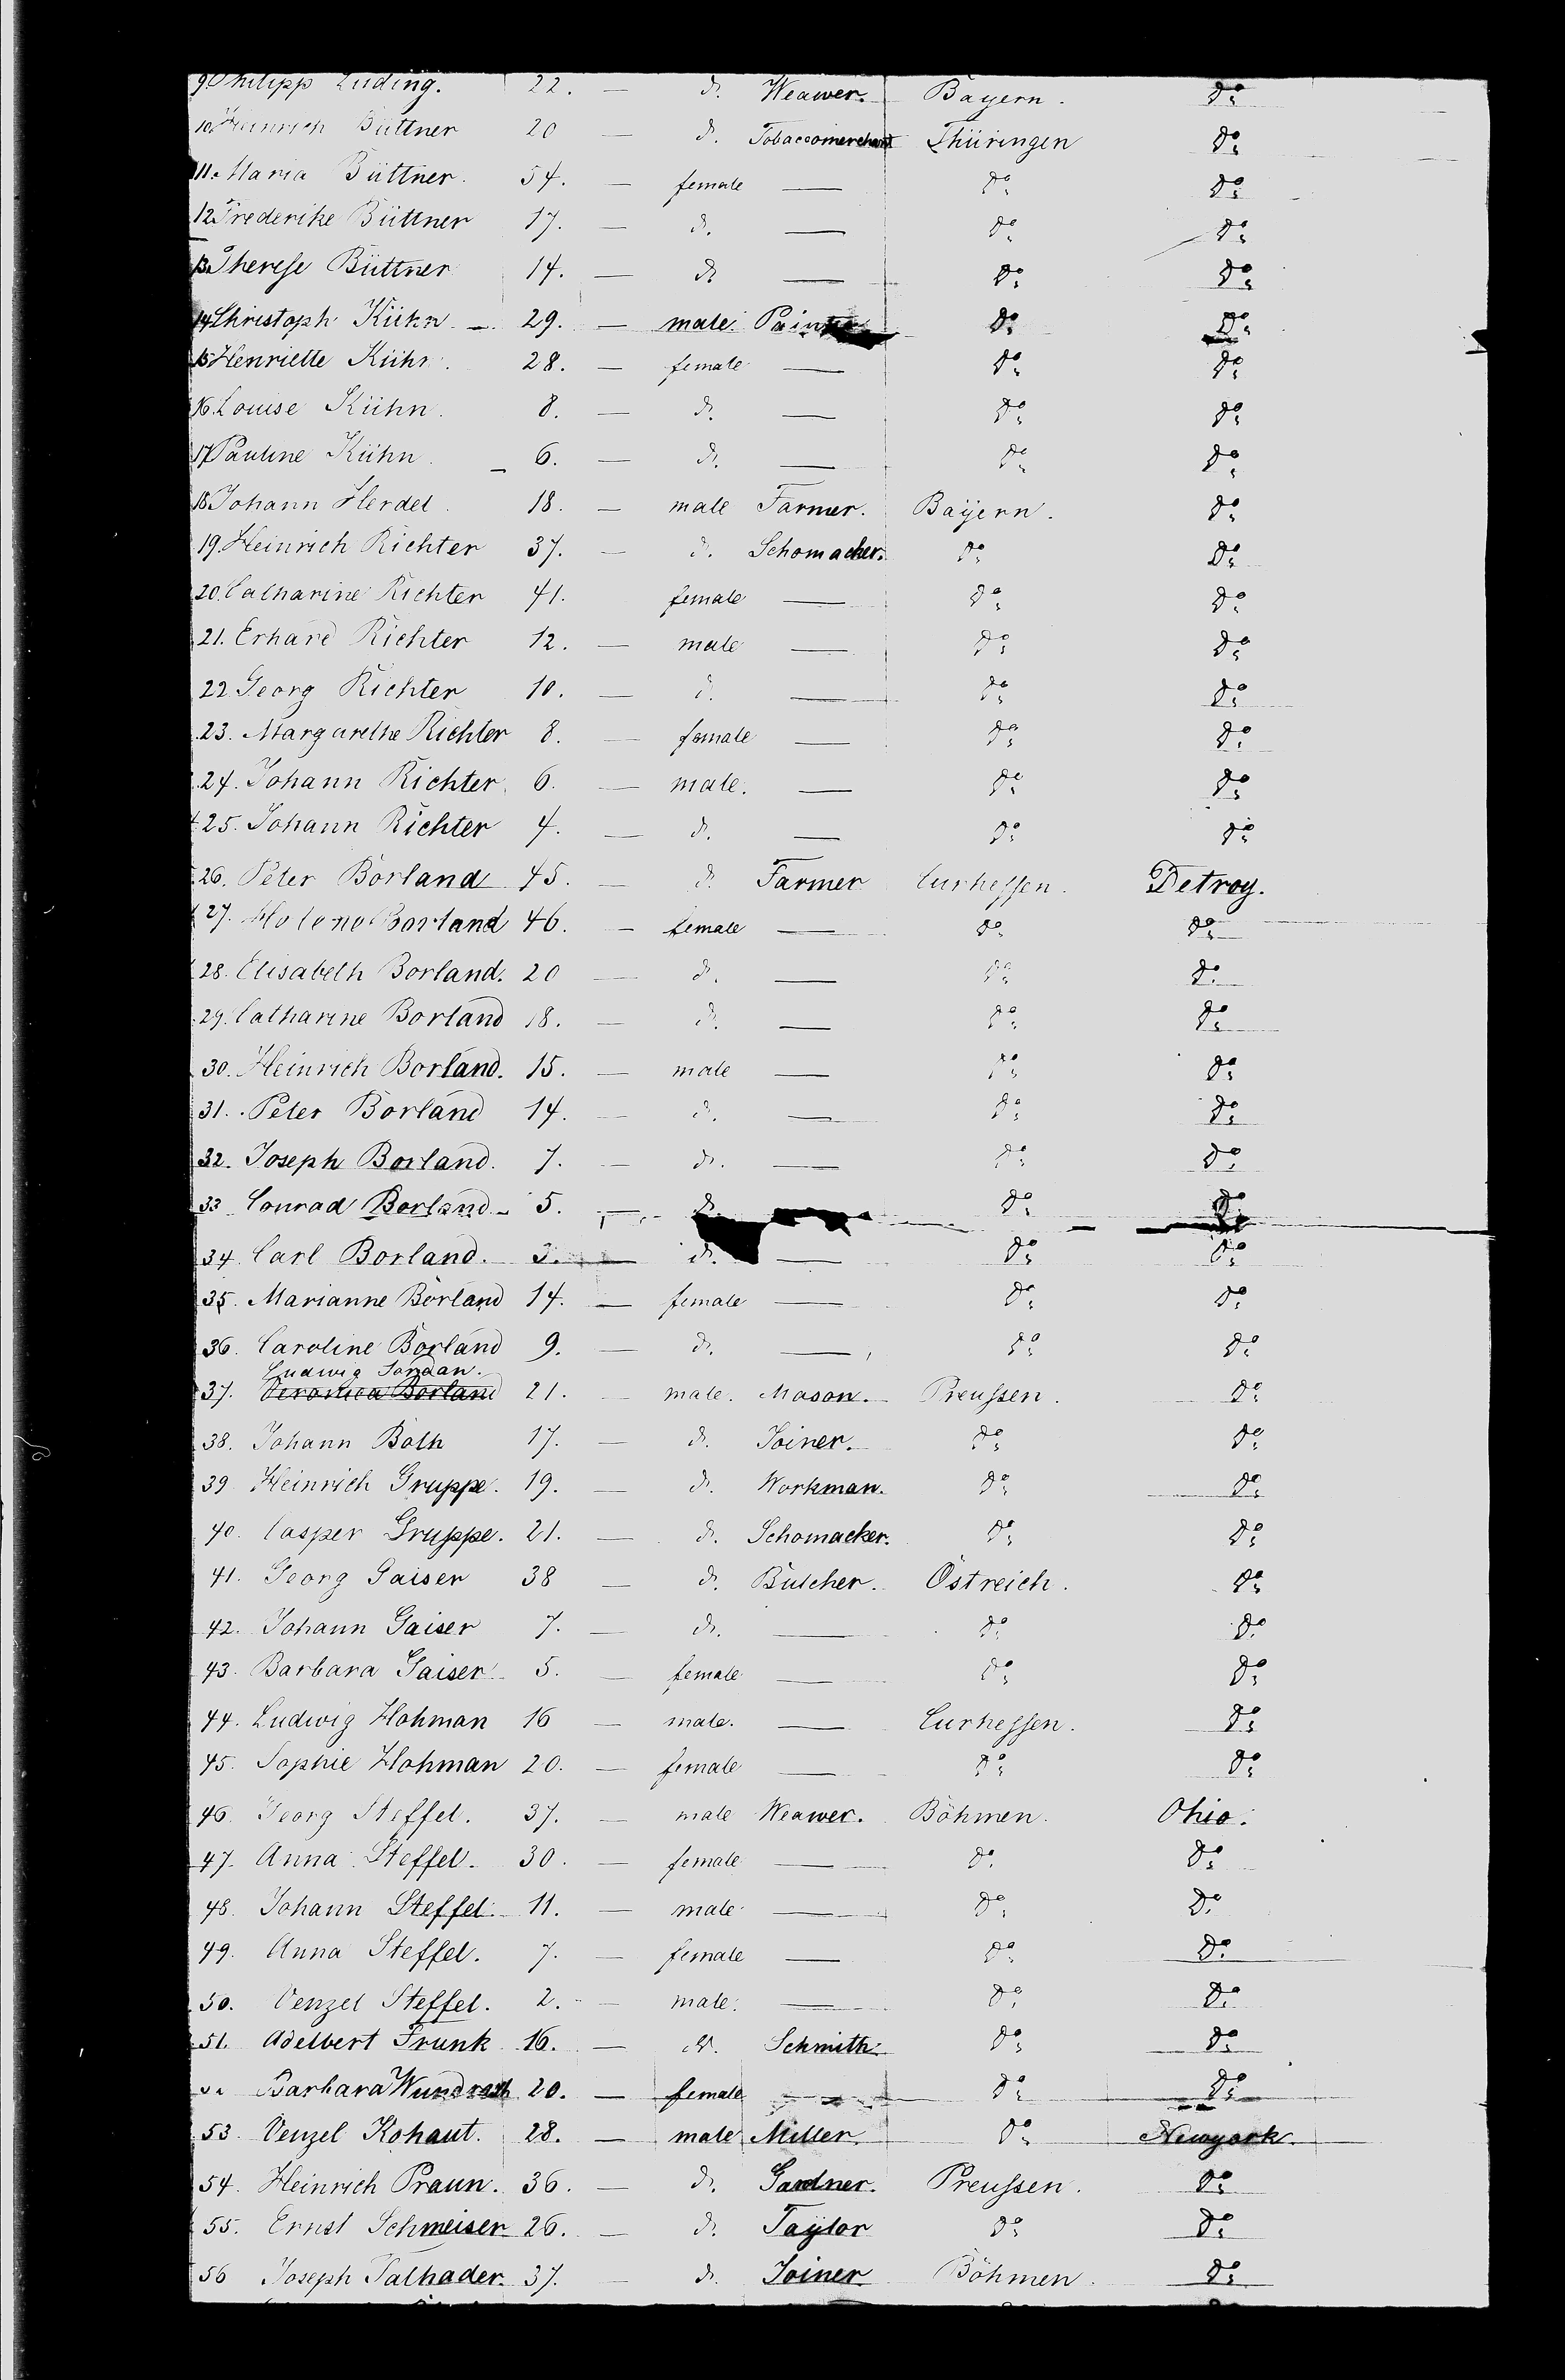 9. Philipp Luding. 22. — do. Weawer. Bayern. do
10. Heinrich Büttner 20 — do. Tobaccomerchant Thüringen do
11. Maria Büttner. 54. — female — do do
12. Frederike Büttner 17. — do. — do do
13. Therese Büttner 14. — do — do do
14. Christoph Kühn — 29. — male. Painter do do
15. Henriette Kühn. 28. — female — do do
16. Louise Kühn. 8. — do. — do do
17. Pauline Kühn. 6. — do. — do do
18. Johann Herdel. 18. — male Farmer. Bayern. do
19. Heinrich Richter 37. — do. Schomacker. do do
20. Catharine Richter 41. female — do do
21. Erhard Richter 12. — male — do do
22. Georg Richter 10. — do. — do do
23. Margarethe Richter 8. — female — do do
24. Johann Richter 6. — male. — do do
25. Johann Richter 4. — do. — do do
26. Peter Borland 45. — do. Farmer Curhessen. Detroy.
27. Borland 46. — female — do do
28. Elisabeth Borland. 20 — do. — do do
29. Catharine Borland 18. — do. — do do
30. Heinrich Borland. 15. — male — do do
31. Peter Borland 14. — do. — do do
32. Joseph Borland. 7. — do. — do do
33. Conrad Borland — 5. — do do do
34. Carl Borland. 3. — do. — do do
35. Marianne Borland 14. — female — do do
36. Caroline Borland 9. — do. — do do
Ludwig Jordan.
37. Veronica Borland 21. — male. Mason. Preussen. do
38. Johann Both 17. — do. Joiner. do do
39 Heinrich Gruppe. 19. — do. Workman. do do
40. Casper Gruppe. 21. — do. Schomacker. do do
41. Georg Gaiser 38 — do. Butcher. Östreich. do
42. Johann Gaiser 7. — do. — do do
43. Barbara Gaiser 5. — female — do do
44. Ludwig Hohman 16 — male. — Curhessen. do
45. Sophie Hohman 20. — female — do do
46. Georg Steffel. 37. — male Weawer. Böhmen. Ohio.
47. Anna Steffel. 30. — female — do do
48. Johann Steffel. 11. — male — do do
49. Anna Steffel. 7. — female — do do
50. Venzel Steffel. 2. — male. — do do
51. Adelbert Frunk 16. — do. Schmith do do
Barbara 20. — female — do do
53. Venzel Kohaut. 28. — male Miller. do Newyork.
54. Heinrich Praun. 36. — do. Gardner. Preussen. do
55. Ernst Schmeiser 26. — do. Taylor do do
56 Joseph Talhader. 37. — do. Joiner Böhmen. do